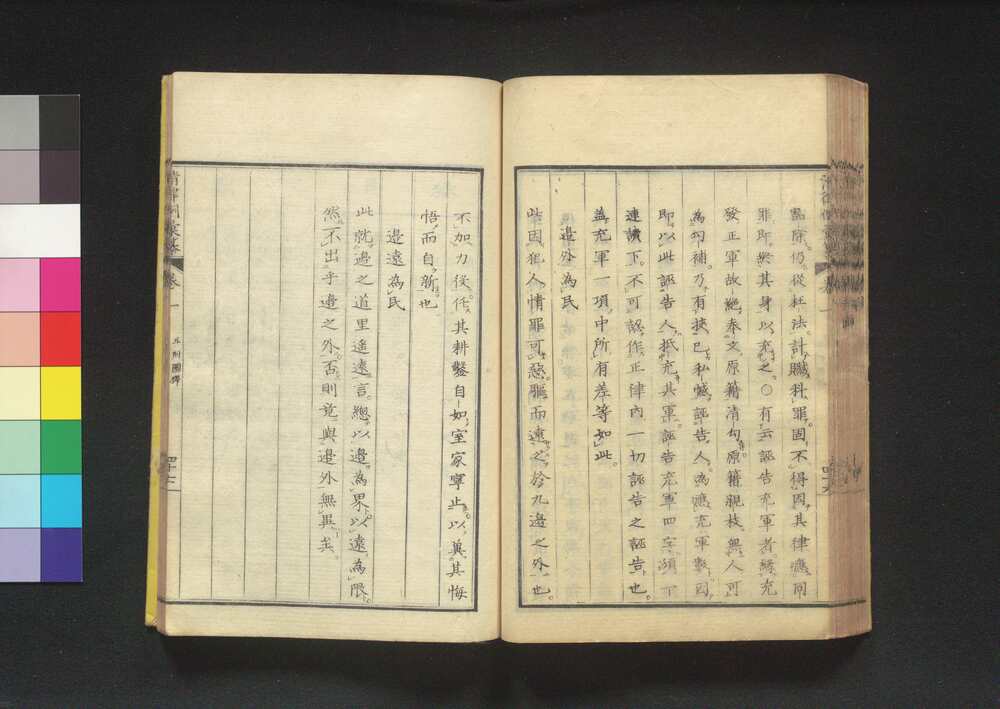 監除仍從枉法計贓科罪固不得因其律應同
罪即發其身以充之○有云誣告充軍者緣充
發正軍故絕奉文原籍清勾原籍親枝無人可
為勾補乃有挾己私憾誣告人為應充軍數因
即以此誣告人抵充其軍誣告充軍四字須一
連讀下不可誤作正律內一切誣告之誣告也
蓋充軍一項中所有差等如此
邊外為民
此因犯人情罪可惡驅而遠之於九邊之外也
不加力役任其耕鑿自如室家寧止以冀其悔
悟而自新也
邊遠為民
此就邊之道里遙遠言總以邊為界以遠為限
然不出乎邊之外否則竟與邊外無異矣
卷一
五刑圖釋
四十七